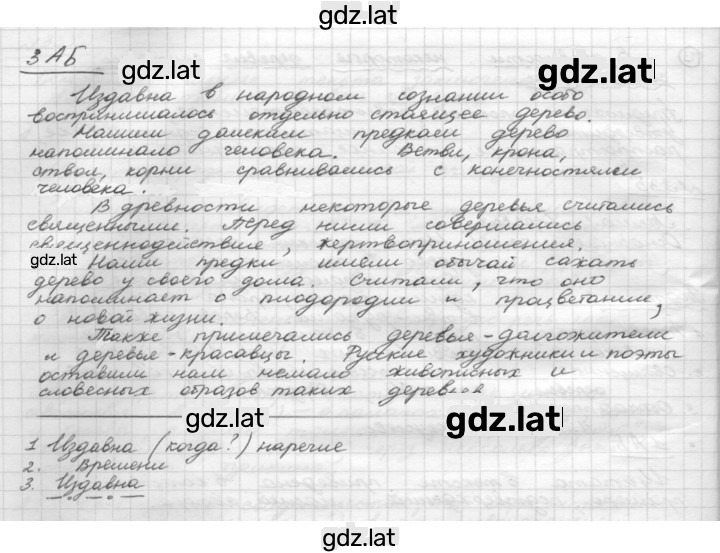 gdz.lat
3 АБ
gdz.lat
gdz.lat
Издавна в народном сознании особо
воспринималось отдельно стоящее дерево.
Нашим далеким предкам дерево
напоминало человека. Ветви, крона,
ствол, корни сравнивались с конечностями
человека.
В древности некоторые деревья считались
священными. Перед ними совершались
священнодействие, жертвоприношения.
gdz.lat
Наши предки имели обычай сажать
дерево у своего дома. Считали, что оно
напоминает о плодородии и процветании,
о новой жизни.
Также примечались деревья-долгожители
и деревья-красавцы. Русские художники и поэты
оставили нам немало живописных и
словесных образов таких
gdz.lat
gdz.lat
1 Издавна (когда?) наречие
2. Времени
3. Издавна
gdz.lat